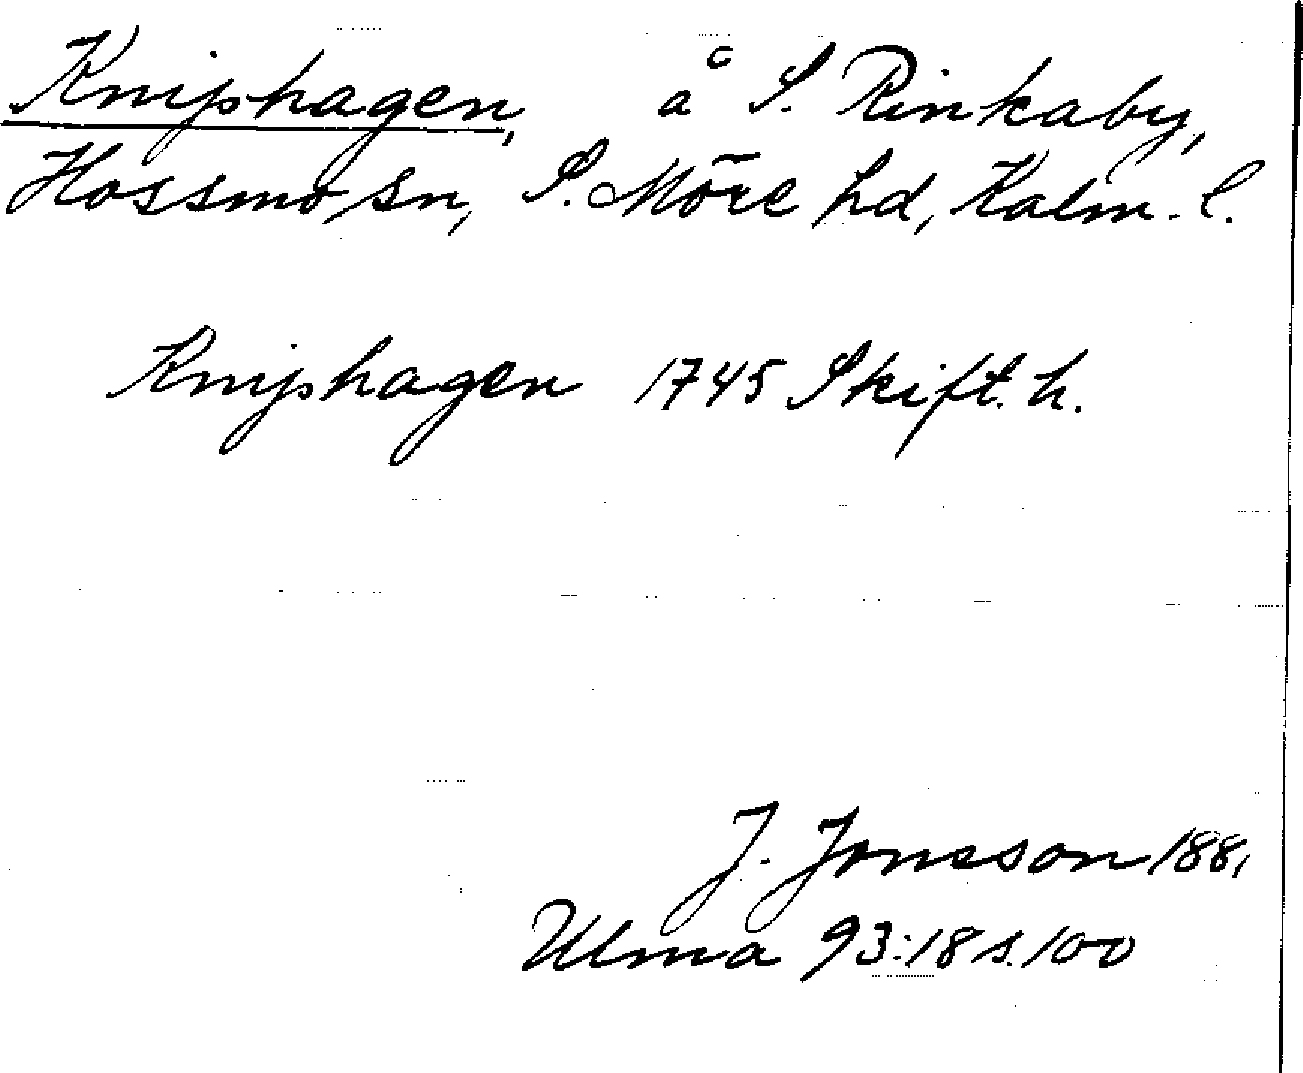 Kniphagen, å S. Rinkaby,
Hossmo sn, S. Möre hd, Kalm. l.
Kniphagen 1745 Skift. h.
J. Jonsson 1881
Ulma 93:18 s. 100